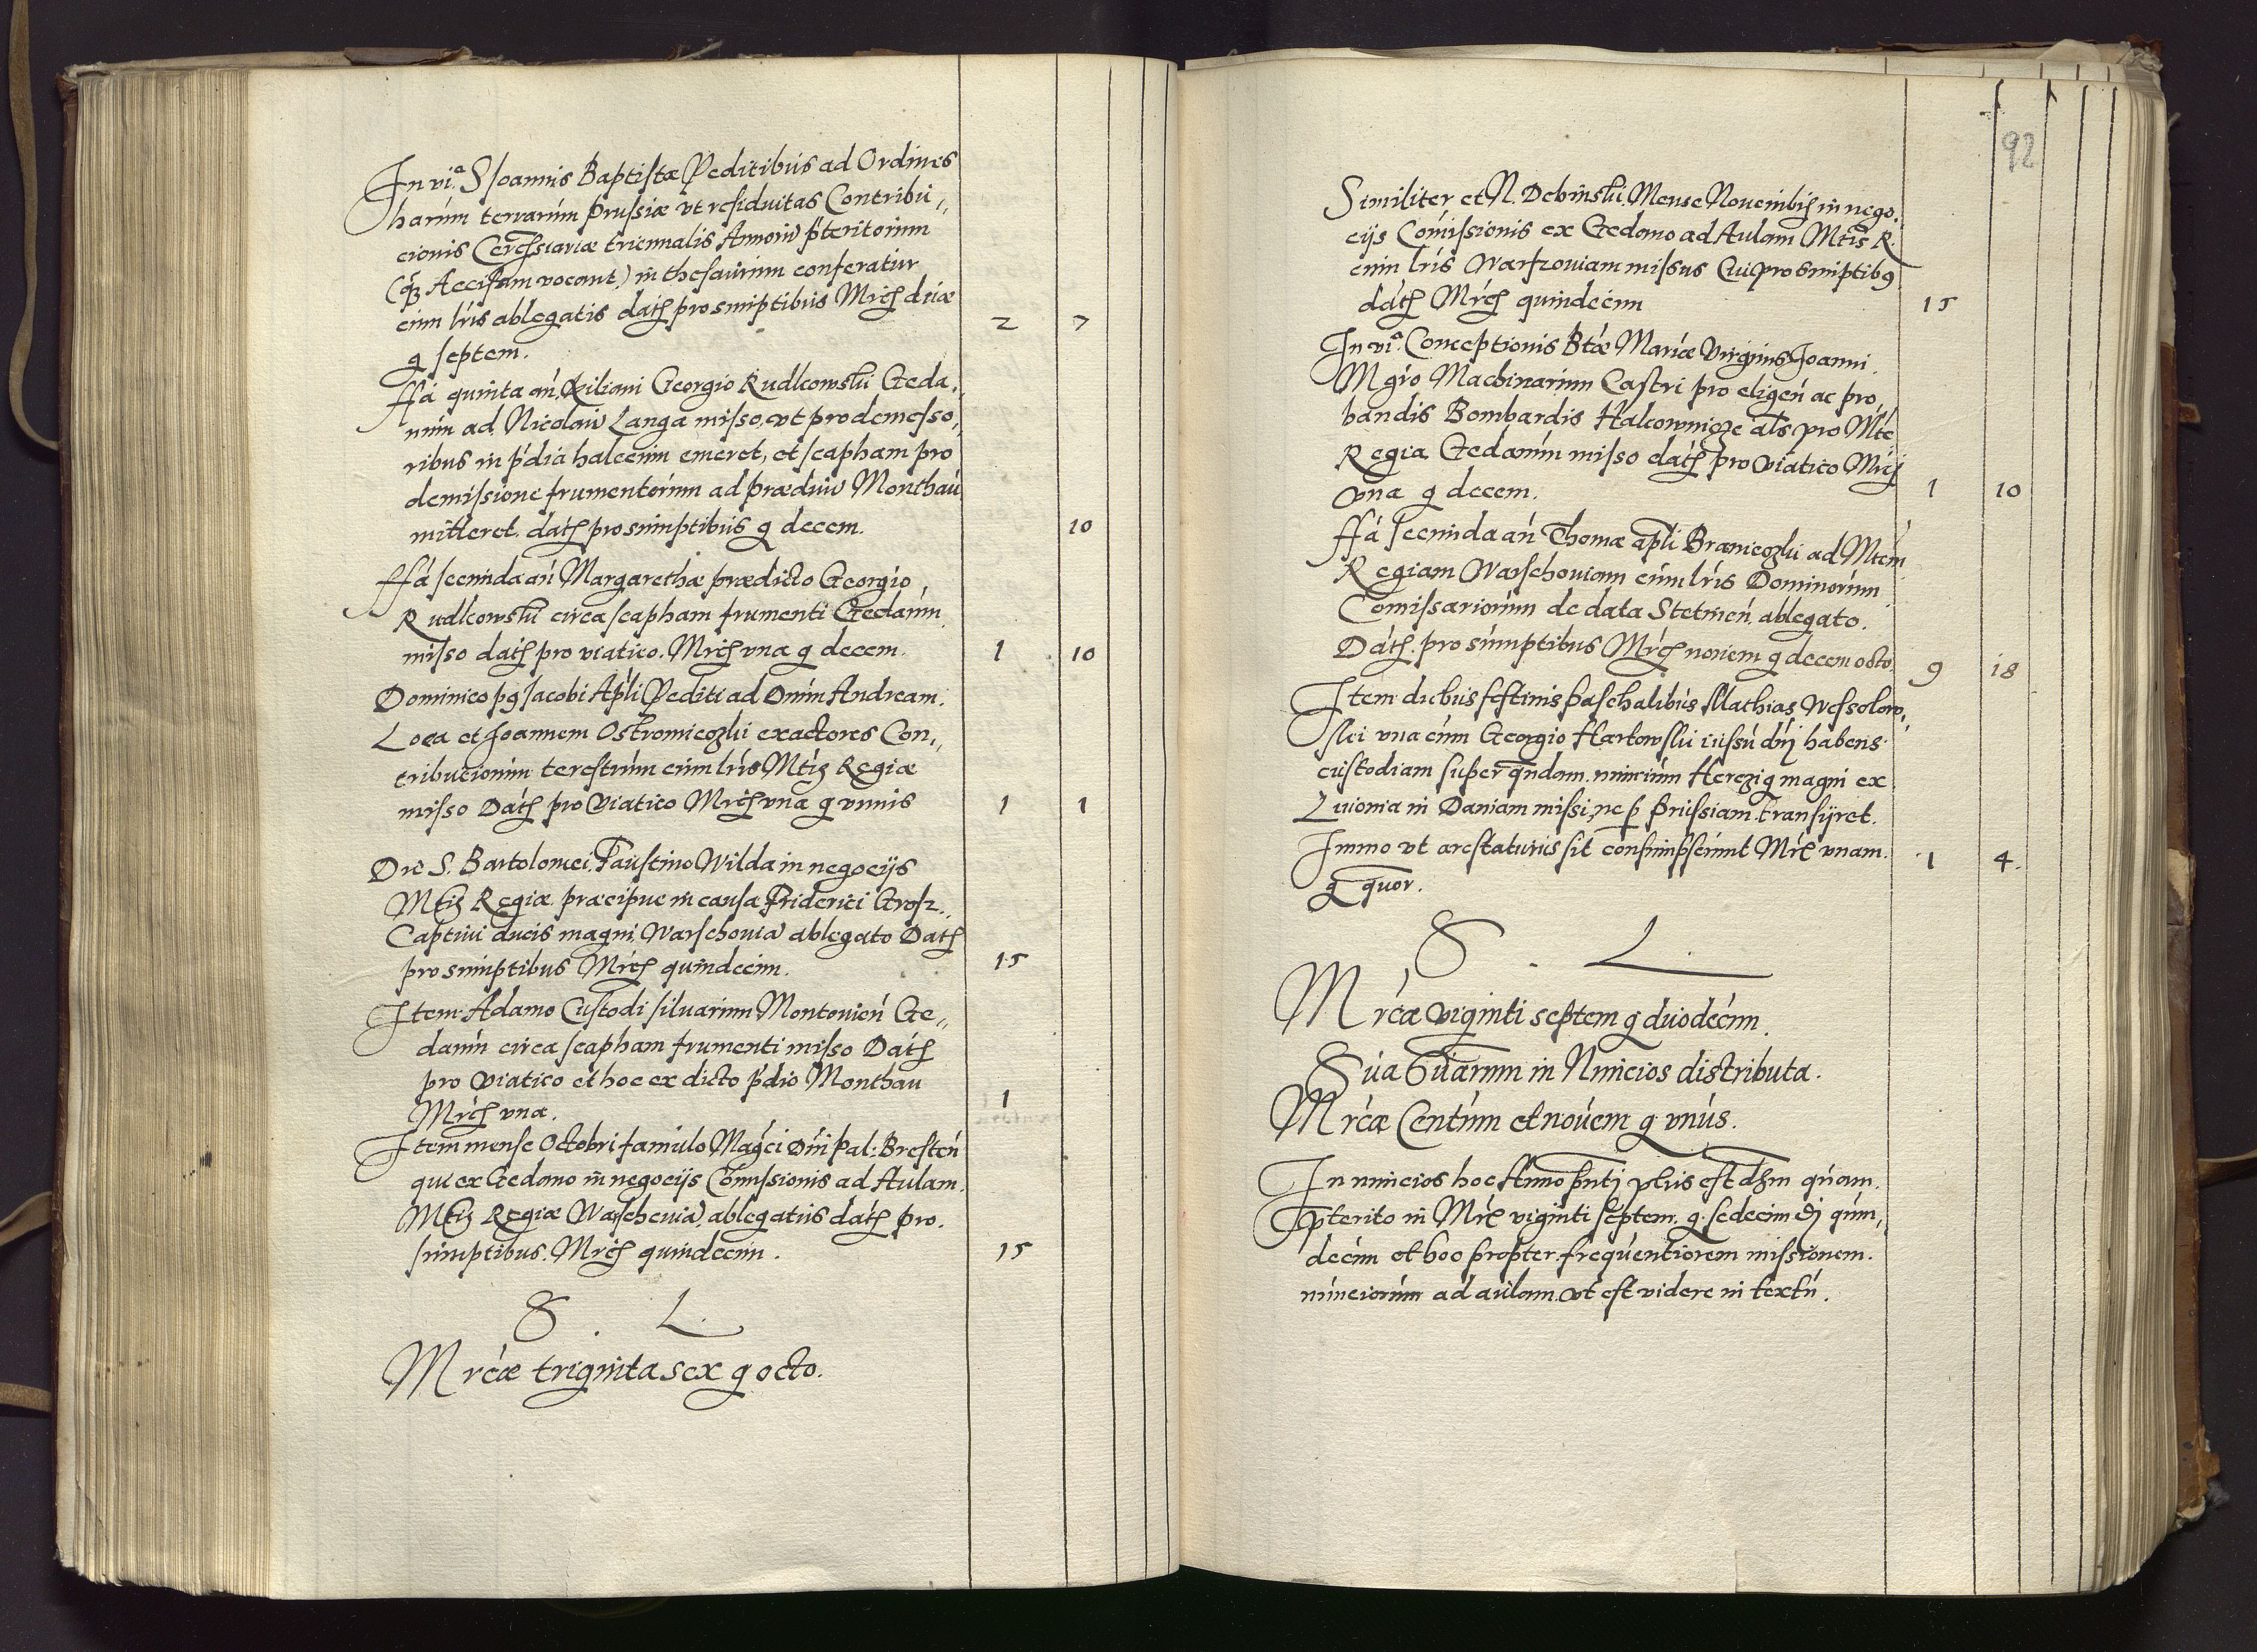 In vi.ᵃ S Joannis Baptistæ Peditibus ad Ordines
harum terrarum Prussiæ vt residuitas Contribu„
cionis Cereuisiariæ triennalis Annorū p̄teritorum
(q̄ Accisam vocant) in thesaurum conferatur
cum lr̄is ablegatis dat̄ pro sumptibus Mrc̄ duæ
g septem. 2 7
ffā quinta an̄. Kiliani Georgio Rudkowski Geda„
num ad Nicolaū Langa misso, vt pro demesso„
ribus in p̄dia halecum emeret, et scapham pro
demissione frumentorum ad prædiū Monthau
mitteret. dat̄ pro sumptibus g decem. 10
ffā secunda an̄ Margarethæ prædicto Georgio
Rudkowski circa scapham frumenti Gedanum
misso dat̄ pro viatico. Mrc̄ vna g decem. 1 10
Dominico p9 Jacobi Apl̄i Pediti ad Dnūm Andream
Loca et Joannem Ostromieczki exactores Con„
tribucionum terestrum cum lr̄is Mtis Regiæ
misso Dat̄ pro Viatico Mrc̄ vna g vnus 1 1
Die S. Bartolomei. Faustino Wilda in negocijs
Mtis Regiæ præcipue in causa Friderici Grosz„
Captiui ducis magni, Warschouiā ablegato Dat̄
pro sumptibus Mrc̄ quindecim. 15
Item Adamo Custodi siluarum Montouien̄ Ge„
danum circa scapham frumenti misso Dat̄
pro viatico et hoc ex dicto p̄dio Monthau
Mrc̄ vna. 1
Item mense Octobri famulo Maḡci Dn̄i Pal: Bresten̄
qui ex Gedano in negocijs Comissionis ad Aulam
Mtis Regiæ Warscheuiā, ablegatus dat̄ pro
sumptibus. Mrc̄ quindecim. 15
S. L.
Mrcæ triginta sex g octo.
92
Similiter et N. Debinski. Mense Nouembris in nego„
cijs Comissionis ex Gedano ad Aulam Mtis R.
cum lr̄is Warszouiam missus Cui pro sumptib9
dat̄ Mrc̄ quindecim 15
In vi.ᵃ Conceptionis Btæ Mariæ Virginis Joanni
Mgr̄o Machinarum Castri pro eligen̄ ac pro„
bandis Bombardis Halcownicze al̄s pro Mte
Regia Gedanum misso dat̄ pro Viatico Mrc̄
vna g decem. 1 10
ffā secunda an̄ Thomæ apl̄i Branieczki ad Mtem
Regiam Warschouiam cum lr̄is Dominorum
Comissariorum de data Stetinen̄, ablegato.
Dat̄. pro sumptibus Mrc̄ nouem g decem octo 9 18
Item diebus festiuis paschalibus Mathias Wessolow„
ski vna cum Georgio Harkowski iussu dn̄j habens
custodiam super q̄ndam nuncium Herczig magni ex
Liuonia in Daniam missi, ne p Prussiam transijret.
Immo vt arestaturus sit consumpserunt Mrc̄ vnam
g quor. 1 4.
S. L.
Mrcæ viginti septem g duodecim.
Su̅a Su̅arum in Nuncios distributa.
Mrcæ Centum et nouem g vnus.
In nuncios hoc Anno pn̄tj plus est distm̄ quam
p̄terito in Mrc̄ viginti septem. g sedecim đ quin„
decim et hoc propter frequentiorem missionem
nunciorum ad aulam vt est videre in textu.